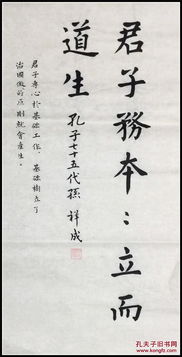 君子務本〻立而
道生
孔子七十五代孫 祥成
君子專心於基礎工作，基礎樹立了
治國做的原則就會產生。
孔夫子旧书网